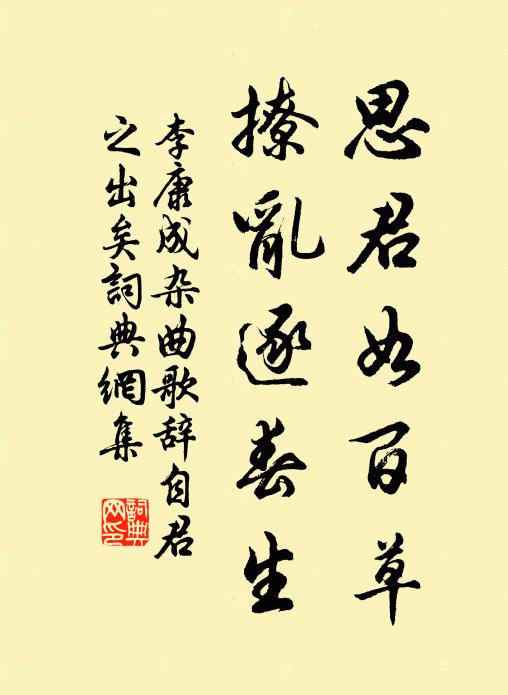 思君如百草
撩亂逐春生
李康成杂曲歌辞自君
之出矣詞典網集
詞典
网印